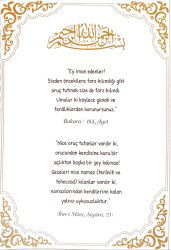 بسم الله الرحمن الرحيم
"Ey iman edenler!
Sizden öncekilere farz kılındığı gibi
oruç tutmak size de farz kılındı.
Umulur ki böylece günah ve
fenalıklardan korunursunuz."
Bakara / 183. Ayet
"Nice oruç tutanlar vardır ki,
orucundan kendisine kuru bir
açlıktan başka bir şey kalmaz!
Geceleri nice namaz (teravih ve
teheccüd) kılanlar vardır ki,
namazlarından kendilerine kalan
yalnız uykusuzluktur."
İbn-i Mâce, Sıyâm, 21